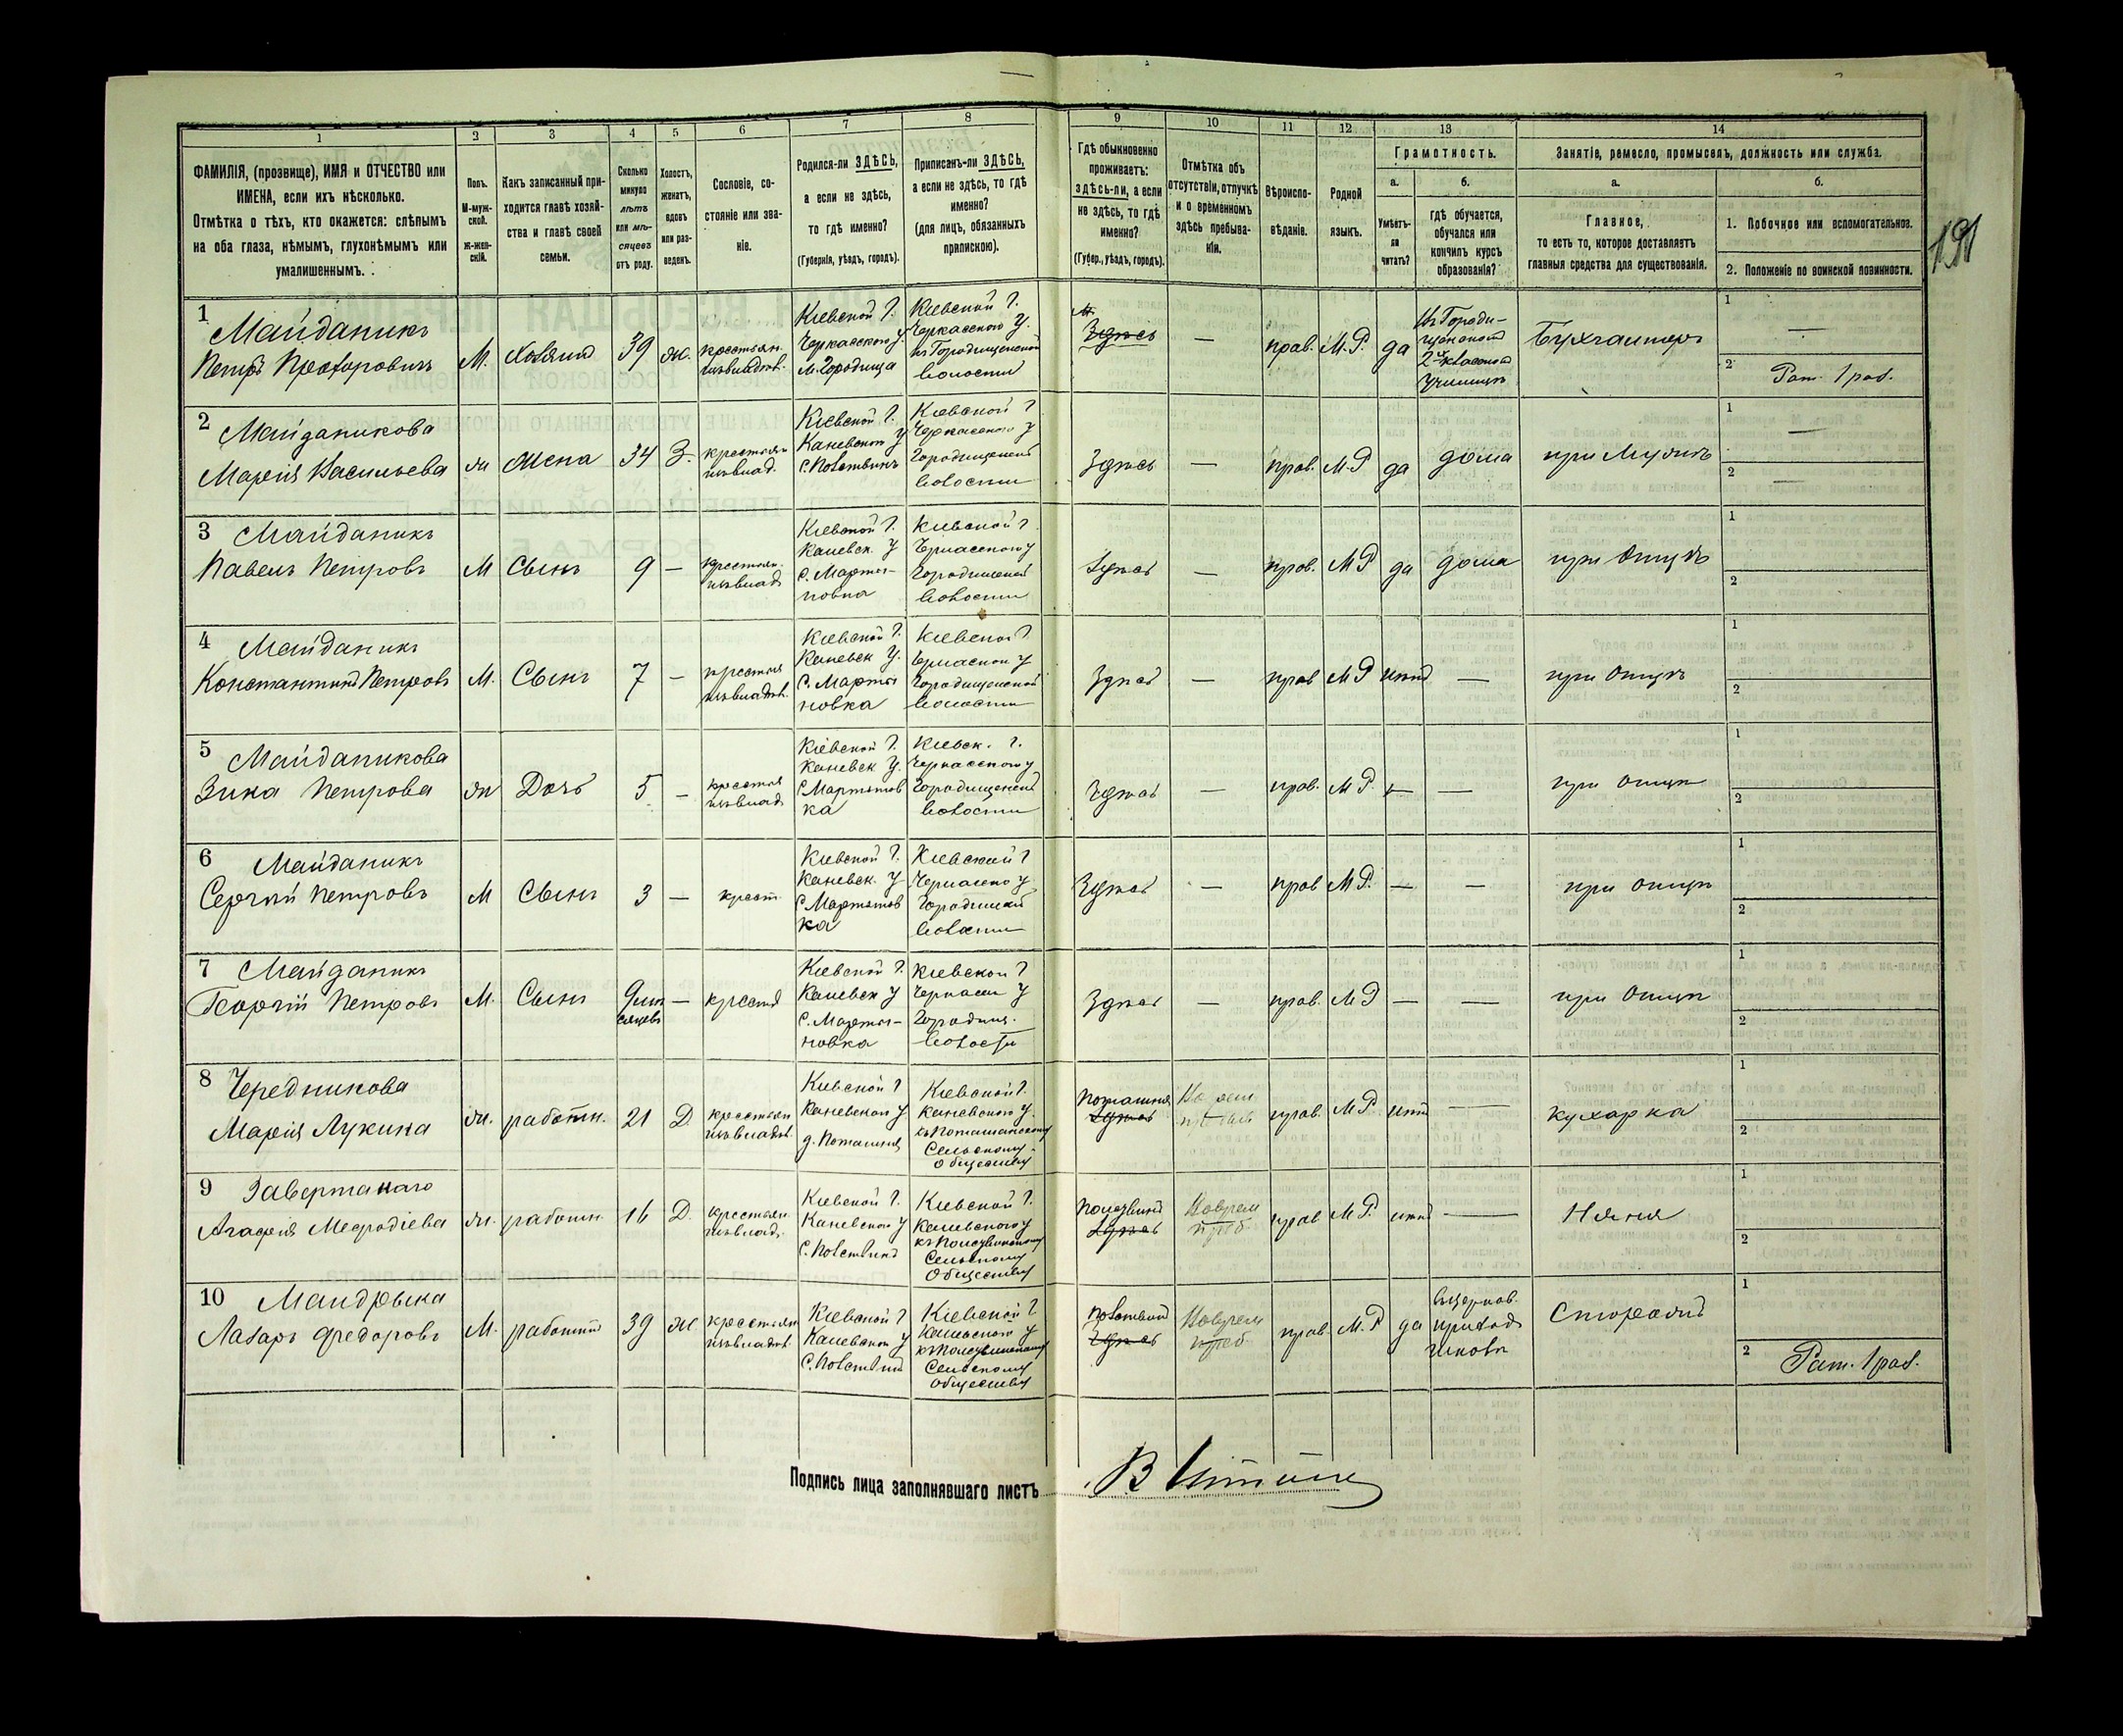 1 2 3 4 5 6 7 8 9 10 11 12 13 14
ФАМИЛІЯ, (прозвище), ИМЯ и ОТЧЕСТВО или
ИМЕНА, если ихъ нѣсколько.
Отмѣтка о тѣхъ, кто окажется: слѣпымъ
на оба глаза, нѣмымъ, глухонѣмымъ или
умалишеннымъ.
Полъ.
М-муж-
ской.
Ж-жен-
скій.
Какъ записанный при-
ходится главѣ хозяй-
ства и главѣ своей
семьи.
Сколько
минуло
лѣтъ
или мѣ-
сяцевъ
отъ роду.
Холостъ,
женатъ,
вдовъ
или раз-
веденъ.
Сословіе, со-
стояніе или зва-
ніе.
Родился-ли ЗДѢСЬ,
а если не здѣсь,
то гдѣ именно?
(Губернія, уѣздъ, городъ).
Приписанъ-ли ЗДѢСЬ,
а если не здѣсь, то гдѣ
именно?
(для лицъ, обязанныхъ
припискою).
Гдѣ обыкновенно
проживаетъ:
здѣсь-ли, а если
не здѣсь, то гдѣ
именно?
(Губер., уѣздъ, городъ).
Отмѣтка объ
отсутствіи, отлучкѣ
и о временномъ
здѣсь пребыва-
ніи.
Вѣроиспо-
вѣданіе.
Родной
языкъ.
Грамотность.
а.
Умѣетъ-
ли
читать?
б.
гдѣ обучается,
обучался или
кончилъ курсъ
образованія?
Занятіе, ремесло, промыселъ, должность или служба.
а.
Главное,
то есть то, которое доставляетъ
главныя средства для существованія.
б.
1. Побочное или вспомогательное.
2. Положеніе по воинской повинности.
191
1 Майданикъ
Петръ Прохоровичъ
М. Хозяинъ 39 ж.
крестьян.
изъвладѣл.
Кіевской г.
Черкасскаго у.
м. Городища
Кіевской г.
Черкасскаго у.
къ Городищенской
волости
Здѣсь — прав. М.Р. да
въ Городи-
щенскомъ
2хклассномъ
училищѣ
Бухгалтеръ
1 —
2 Рат. 1 раз.
2 Майданикова
Марія Васильева
ж Жена 34 З.
крестьян
изъвлад.
Кіевской г.
Каневскаго у
Кіевской г
Черкасскаго у
Городищенской
волости
Здѣсь — прав. М.Р да дома при Мужѣ
1 —
2 —
3 Майданикъ
Павелъ Петровъ
М Сынъ 9 —
крестьян.
изъвлад
Кіевской г.
Каневск. у
с. Марты-
новка
Кіевской г
Черкасскаго у
Городищенской
волости
Здѣсь — прав. М Р да дома при Отцѣ
1
2
4 Майданикъ
Константинъ Петровъ
М. Сынъ 7 —
крестьян
изъвладѣл.
Кіевской г.
Каневск у.
с. Марты
новка
Кіевской г
Черкасскаго у
Городищенской
волости
Здѣсь — прав М Р нѣтъ — при Отцѣ
1
2
5 Майданикова
Зина Петрова
ж Дочь 5 —
крестьян
изъвлад
Кіевской г.
Каневск у.
с Мартынов
ка
Кіевск. г.
Черкасскаго у
Городищенской
волости
Здѣсь — прав. М Р. — — при отцѣ
1
2
6 Майданикъ
Сергѣй Петровъ
М Сынъ 3 — крест.
Кіевской г.
Каневск. у
с Мартынов
ка
Кіевской г
Черкасскаго у
Городищской
волости
Здѣсь — прав М Р. — — при отцѣ
1
2
7 Майданикъ
Георгій Петровъ
М. Сынъ 9 мѣ
сяцевъ — крестьян
Кіевской г.
Каневск у
с. Марты-
новка
Кіевской г
Черкасск у
Городищ.
волости
Здѣсь — прав. М Р — — при Отцѣ
1
2
8 Чередникова
Марія Лукина
ж. работн. 21 Д
крестьян
изъвладѣл.
Кіевской г
Каневской у
д. Поташня
Кіевской г.
Каневского у.
къ Поташанскому
Сельскому
Обществу
Поташня
Здѣсь
прав. М Р. нѣтъ — кухарка
1
2
9 Завертанаго
Агафія Мефодіева
ж. работн. 16 Д.
крестьян
изъвлад.
Кіевской г.
Каневской у
Кіевской г.
Каневского у
Сельскому
Обществу
Здѣсь
Воврем
преб
прав М.Р. нѣтъ — Няня
1
2
10 Мандрыка
Лазарь Федоровъ
М. работникъ 39 ж.
крестьян
изъвладѣл.
Кіевской г
Каневской у
Кіевской г
Каневского у
Сельскому
Обществу
Здѣсь
Воврем
преб
прав. М.Р да
приход
Сторожъ
1
2 Рат. 1 раз.
Подпись лица заполнявшаго листъ